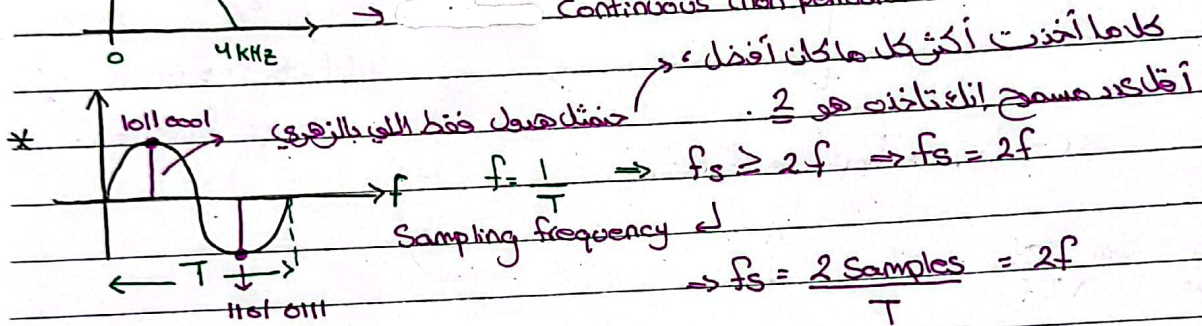 Continuous
0
4kHz
كل ما أخذت أكثر كل ما كان أفضل،
أقل عدد مسموح انك تاخذه هو 2.
* 1011 0001 حنمثل هدول فقط اللي بالزهري
f f = 1/T ⇒ fs ≥ 2f ⇒ fs = 2f
Sampling frequency
T
1101 0111
⇒ fs = 2 Samples / T = 2f